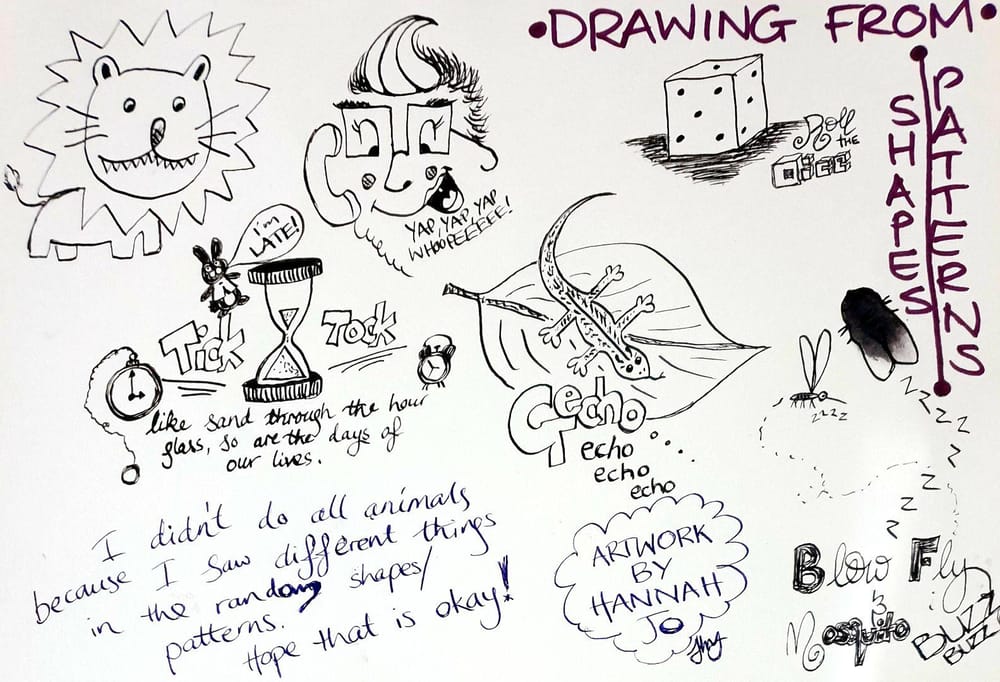 • DRAWING FROM •
SHAPES
PATTERNS
Roll
THE
DICE
YAP, YAP, YAP
WHOOPEEEEEE!
I'm
LATE!
TICK
TOCK
like sand through the hour
glass, so are the days of
our lives.
Gecho
echo
echo
echo
zzzz
Z Z Z Z Z Z Z Z Z
Blow Fly
&
Mosquito
BUZZ
BUZZ
I didn't do all animals
because I saw different things
in the random shapes/
patterns.
Hope that is okay!
ARTWORK
BY
HANNAH
JO